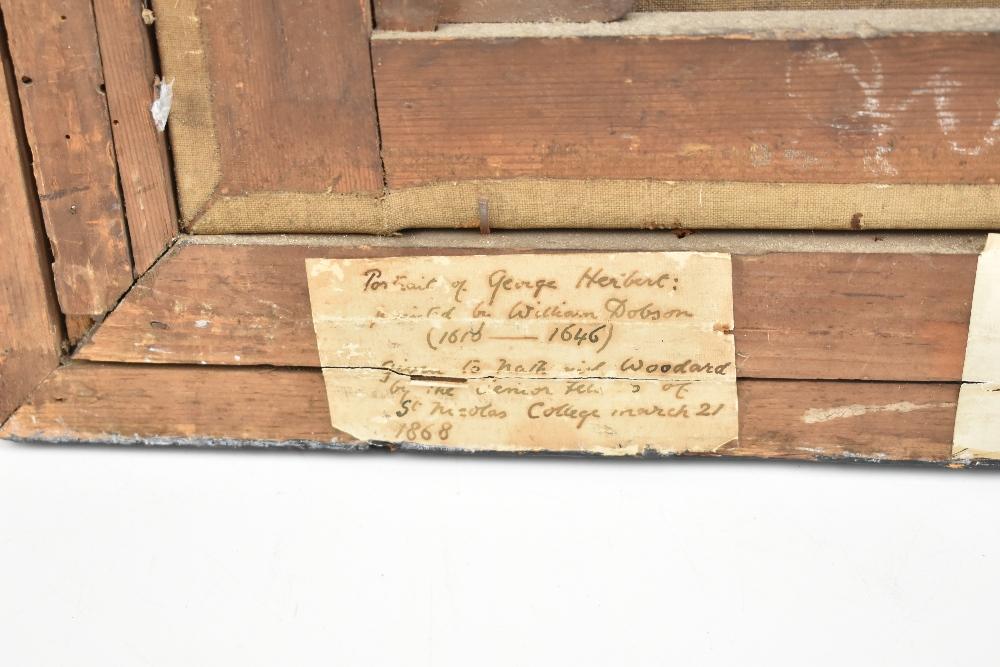 Portrait of George Herbert:
painted by William Dobson
(1610 — 1646)
given to Nath Woodard
by the Senior of
St Nicolas College march 21
1868